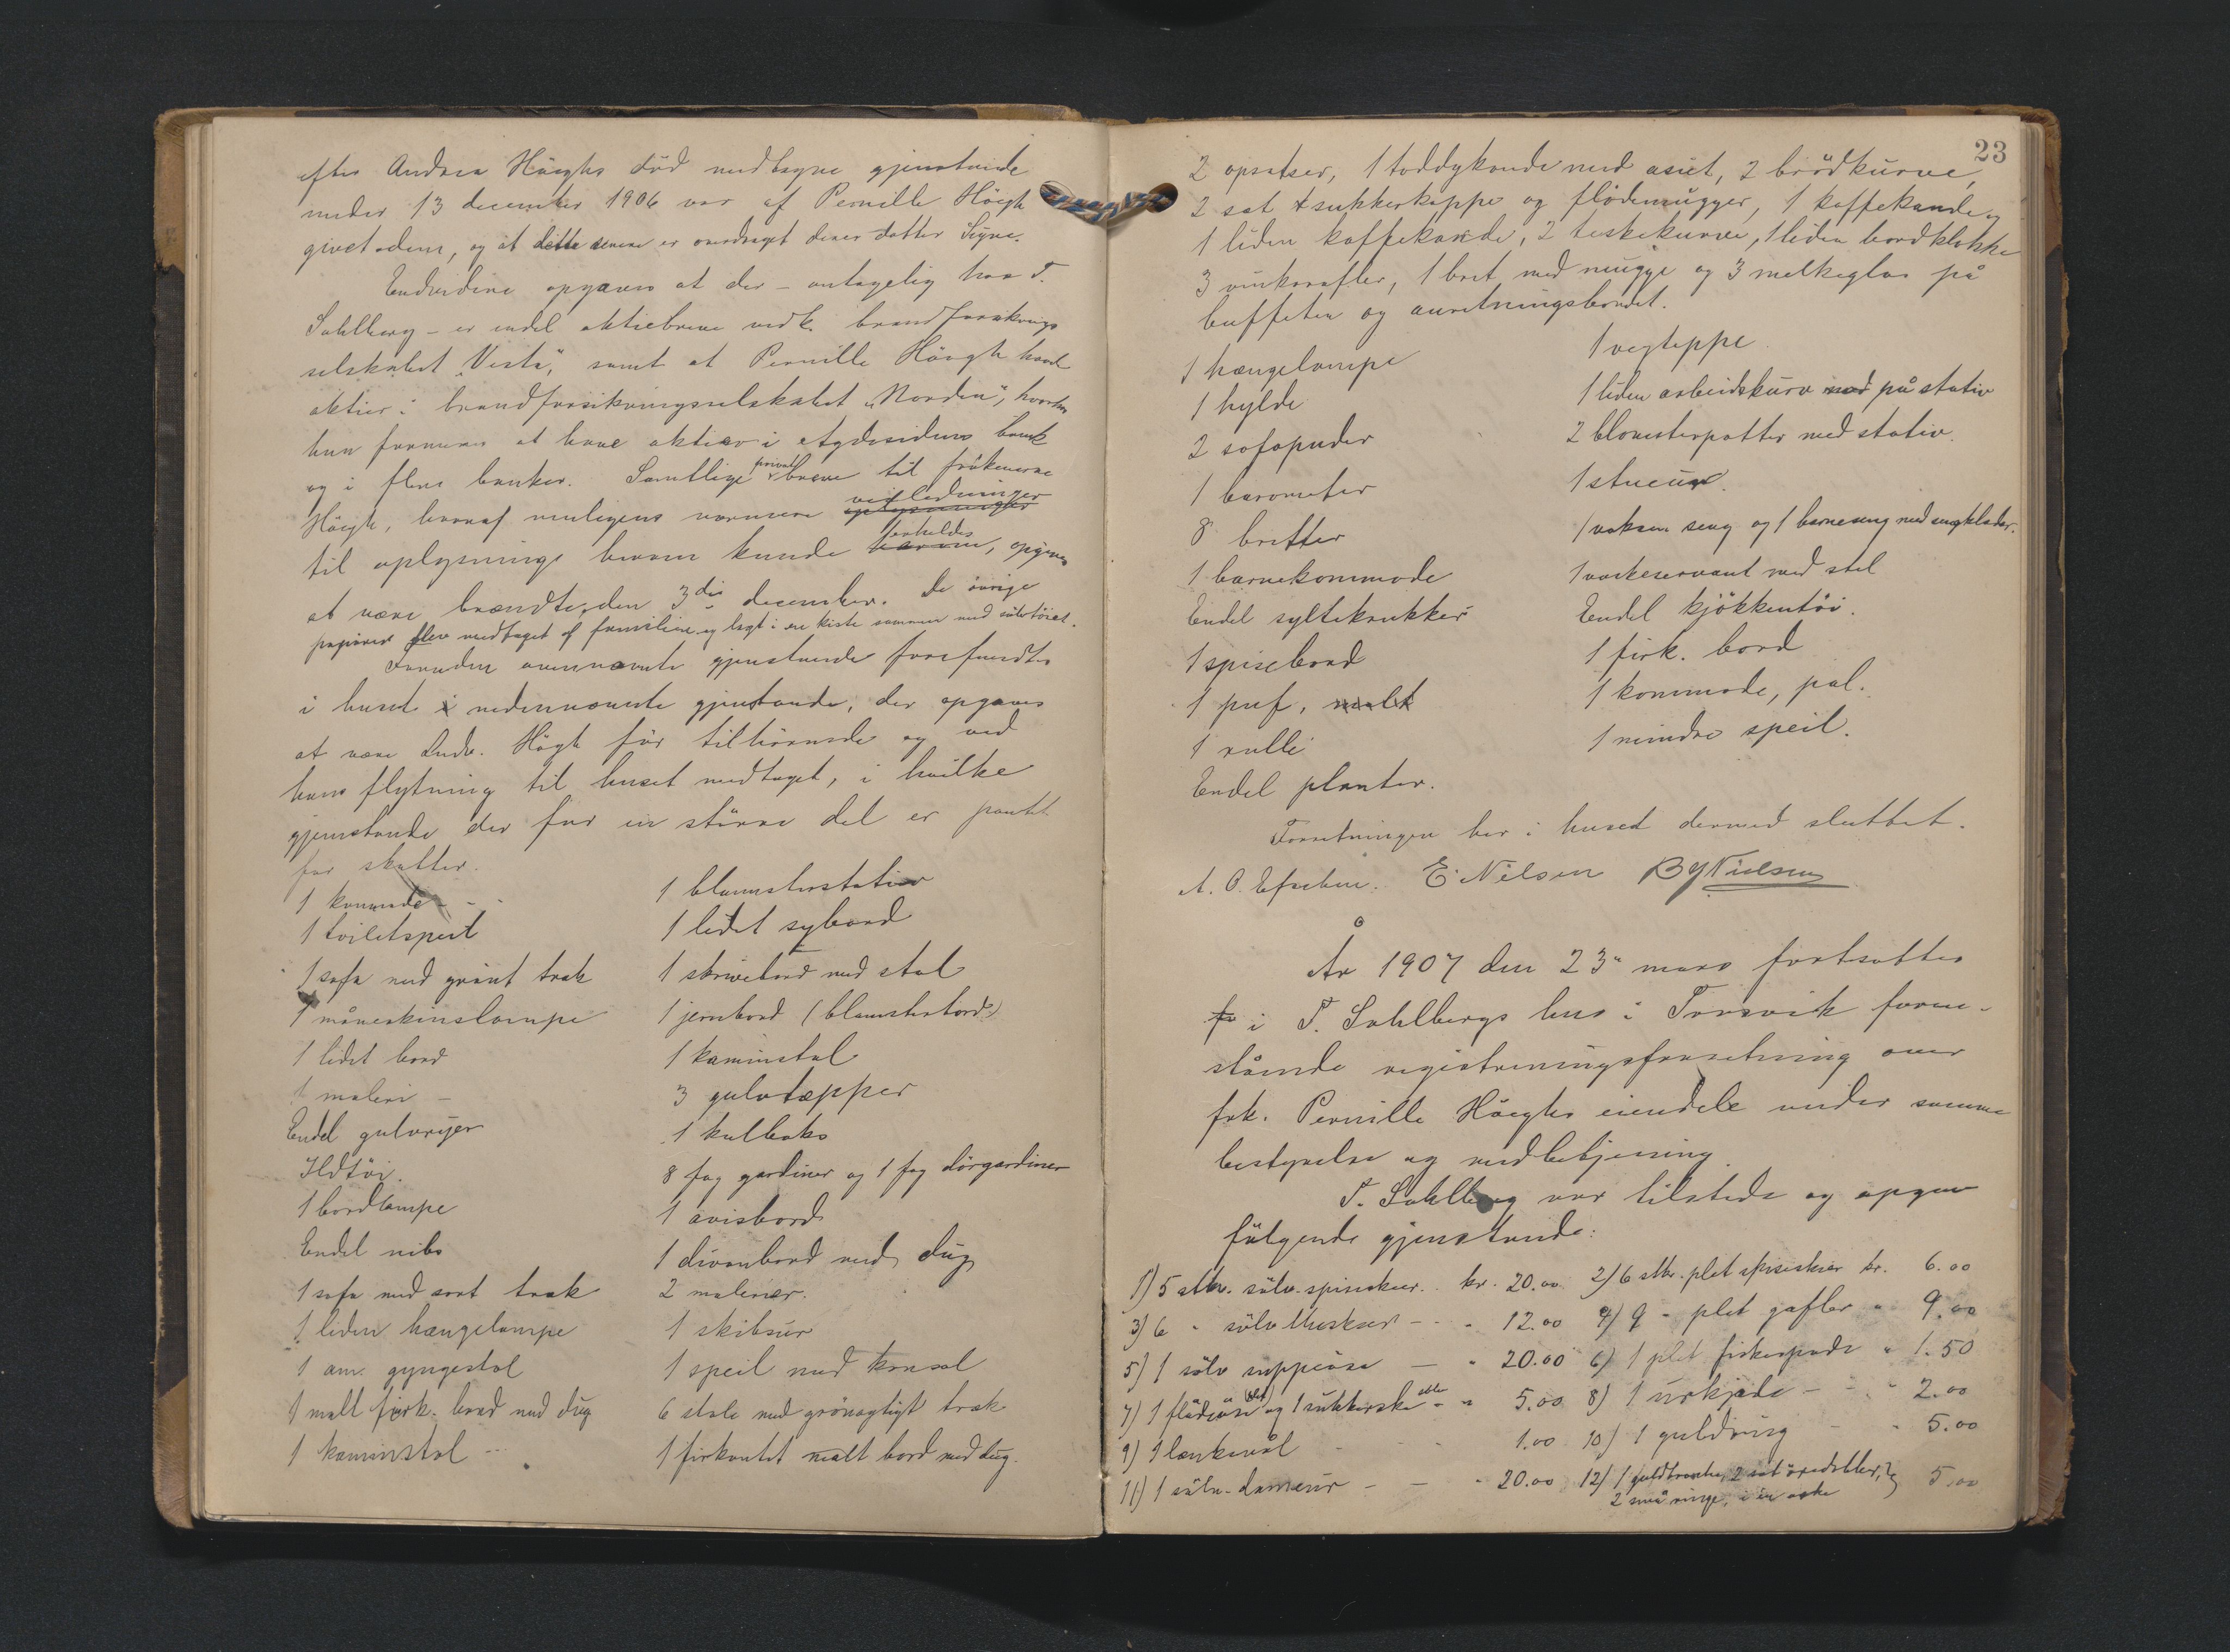 efter Andrea Höeghs död medtagne gjenstande
under 13 december 1906 var af Pernille Höegh
givet dem, og at dette senere er overdraget deres datter Signe.
Endvidere opgaves at der – antagelig hos T.
Sahlberg – er endel aktiebreve vedk. brandforsikrings
selskabet "Vesta", samt at Pernille Höegh havde
aktier i brandforsikringsselskabet "Norden", hvorhos
hun formenes at have aktier i Agdesidens bank
og i flere banker. Samtlige private breve til frökenerne
Höegh, hvoraf muligens nærmere veiledninger
til oplysninge herom kunde erholdes, opgives
at være brændte den 3die december. De övrige
papirer blev medtaget af familien og lagt i en kiste sammen med sölvtöiet.
Foruden ovennævnte gjenstande forefandtes
i huset nedennævnte gjenstande, der opgaves
at være Ludv. Högh för tilhörende og ved
hans flytning til huset medtaget, i hvilke
gjenstande der for en större del er pantet
for skatter.
1 kommode -
1 toiletspeil
1 sofa med grönt træk
1 måneskinslampe
1 lidet bord
1 maleri -
Endel gulvryer
Ildtöi.
1 bordlampe
Endel nibs
1 sofa med sort træk
1 liden hængelampe
1 am. gyngestol
1 malt firk. bord med dug
1 kaminstol -
1 blomsterstativ
1 lidet sybord
1 skrivebord med stol
1 jernbord (blomsterbord)
1 kaminstol
3 gulvtæpper
1 kulboks
8 fag gardiner og 1 fag dörgardiner
1 avisbord
1 divanbord med dug
2 malerier.
1 skibsur
1 speil med konsol
6 stole med grönagtigt træk
1 firkantet malt bord med dug.
23
2 opsatser, 1 toddykande med asiet, 2 brödkurve,
2 sæt sukkerkoppe og flödemugger, 1 kaffekande,
1 liden kaffekande, 2 teskekurve, 1 liden bordklokke
3 vinkarafler, 1 bret med mugge og 3 melkeglas på
buffeten og anretningsbordet.
1 hængelampe
1 hylde
2 sofapuder
1 barometer
8 bretter
1 barnekommode
Endel syltekrukker
1 spisebord
1 puf, malt
1 rulle
Endel planter.
1 vegteppe.
1 liden arbeidskurv med på stativ
2 blomsterpotter med stativ.
1 stueur.
1 voksen seng og 1 barneseng med sengklæder.
1 vaskeservant med stel
Endel kjökkentöi.
1 firk. bord
1 kommode, pol.
1 mindre speil.
Forretningen her i huset dermed sluttet.
A. O. E. Nilsen B Nielsen
År 1907 den 23de mars fortsattes
i T. Sahlbergs hus i Torsvik foran-
stående registreringsforretning over
frk. Pernille Höeghs eiendele under samme
bestyrelse og medbetjening.
T. Sahlberg var tilstede og opgav
fölgende gjenstande:
1) 5 stkr. sölv spiseskeer. kr. 20.00 2) 6 stkr. plet spiseskeer kr. 6.00
3) 6 " sölv theskeer - " 12.00 4) 9 - plet gafler " 9.00
5) 1 sölv suppeöse — " 20.00 6) 1 plet fiskespade " 1.50
7) 1 flödeöse (plet) og 1 sukkerske " 5.00 8) 1 urkjæde - " 2.00
9) 1 lænkenål - - 1.00 10) 1 guldring - " 5.00
11) 1 sölv-dameur - — " 20.00 12) 1 guldbroche, 2 sæt öredobber, og 5.00
2 små ringe, i en æske